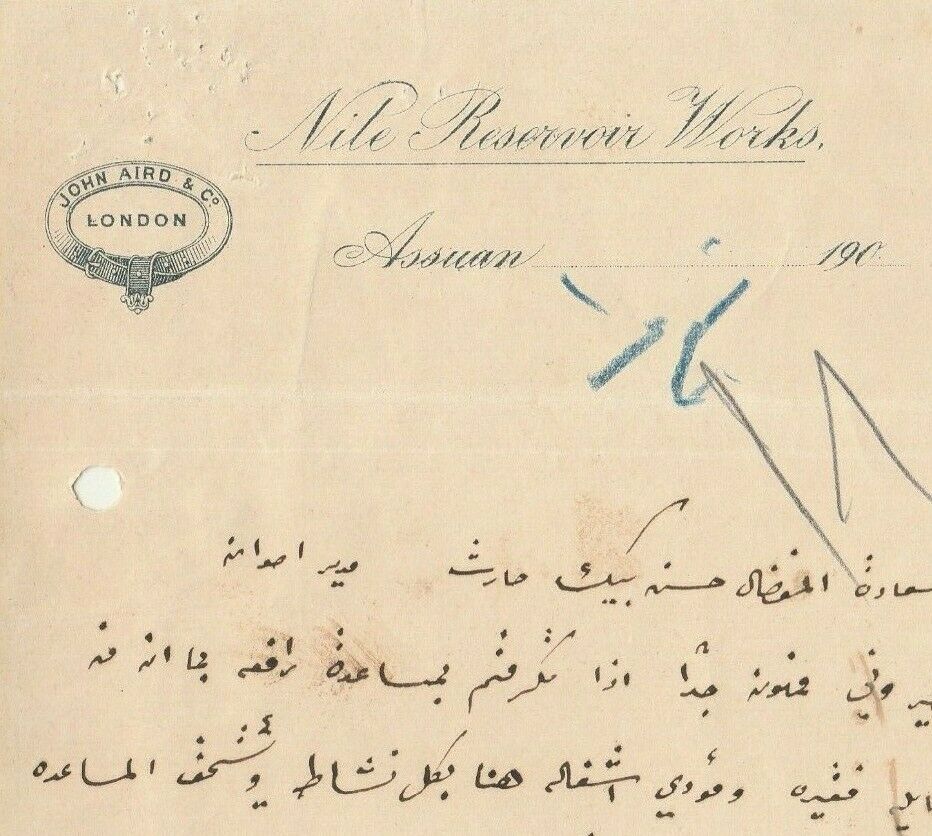 Nile Reservoir Works.
JOHN AIRD & Co
LONDON
Assuan 190
سعادة المفضال حسن بيك حارث مدير اصوان
ممنون جداً اذا تكرمتم بمساعدة رافعه بما انه من
فقيره ومؤدي اشغاله هنا بكل نشاط ويستحق المساعده